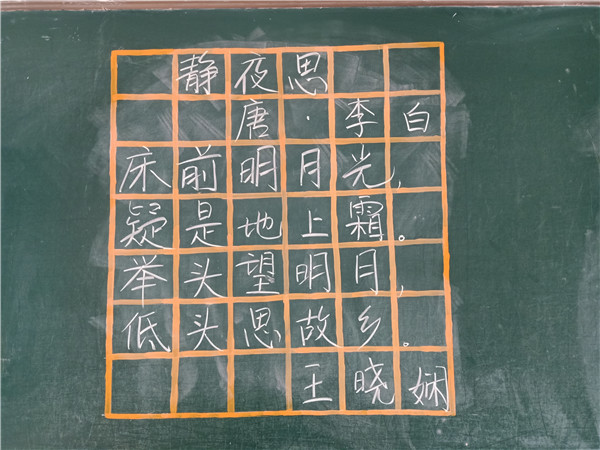 静夜思
唐·李白
床前明月光，
疑是地上霜。
举头望明月，
低头思故乡。
王晓娴